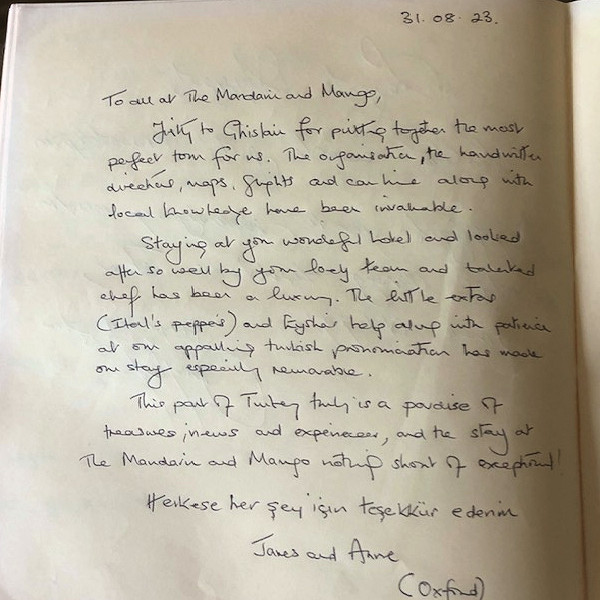 31.08.23.
To all at The Mandarin and Mango,
Firstly to Ghislain for putting together the most
perfect tour for us. The organisation, the handwritten
directions, maps, flights and car hire along with
local knowledge have been invaluable.
Staying at your wonderful hotel and looked
after so well by your lovely team and talented
chef has been a luxury. The little extras
(Ital's peppers) and help along with patience
at our appalling turkish pronounciation has made
our stay especially memorable.
This part of Turkey truly is a paradise of
treasures, views and experiences, and the stay at
The Mandarin and Mango nothing short of exceptional!
Herkese her şey için teşekkür ederim
James and Anne
(Oxford)